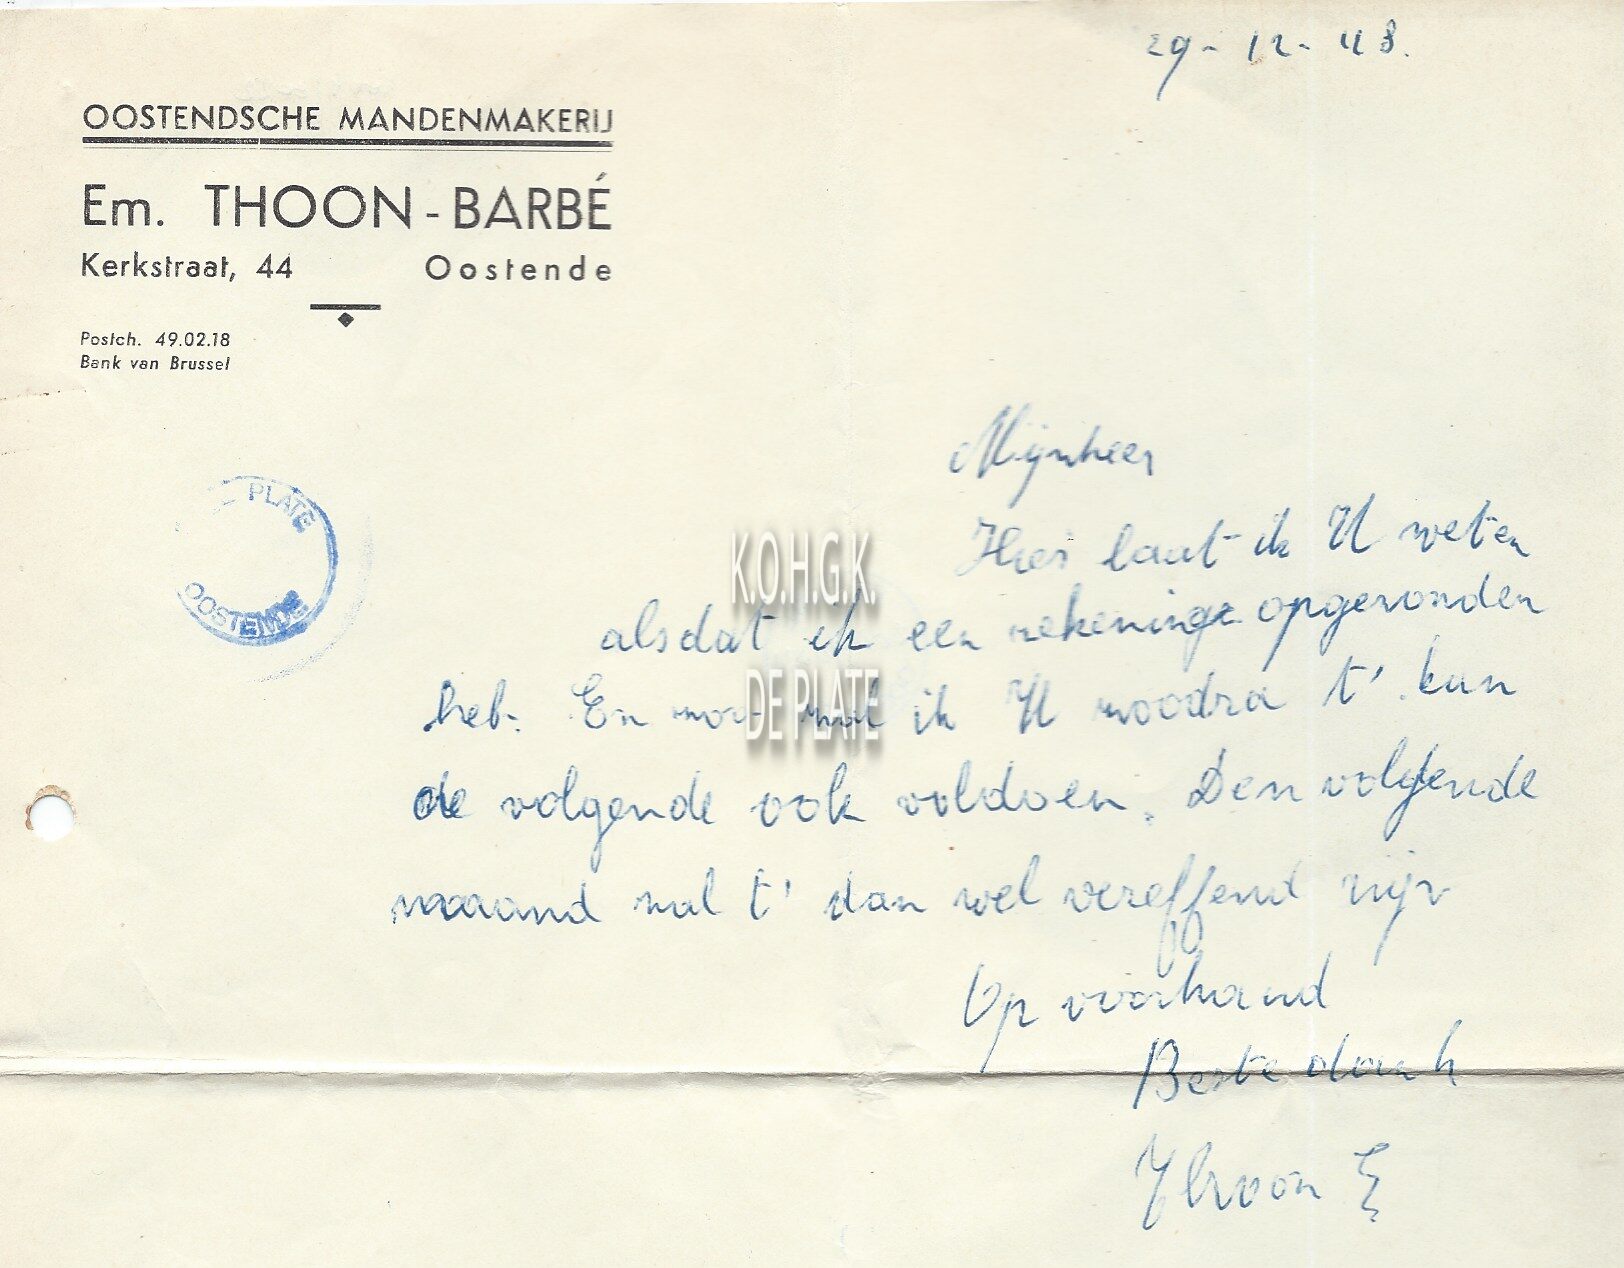 29-12-48.
OOSTENDSCHE MANDENMAKERIJ
Em. THOON-BARBÉ
Kerkstraat, 44 Oostende
Postch. 49.02.18
Bank van Brussel
Mijnheer
PLATE
OOSTENDE
K.O.H.G.K.
DE PLATE
Hier laat ik U weten
alsdat ik een rekening opgevonden
heb. En ik U t' kun
de volgende ook voldoen. Den volgende
maaand zal t' dan wel vereffend zijn
Op voorhand
Beste dank
Thoon E